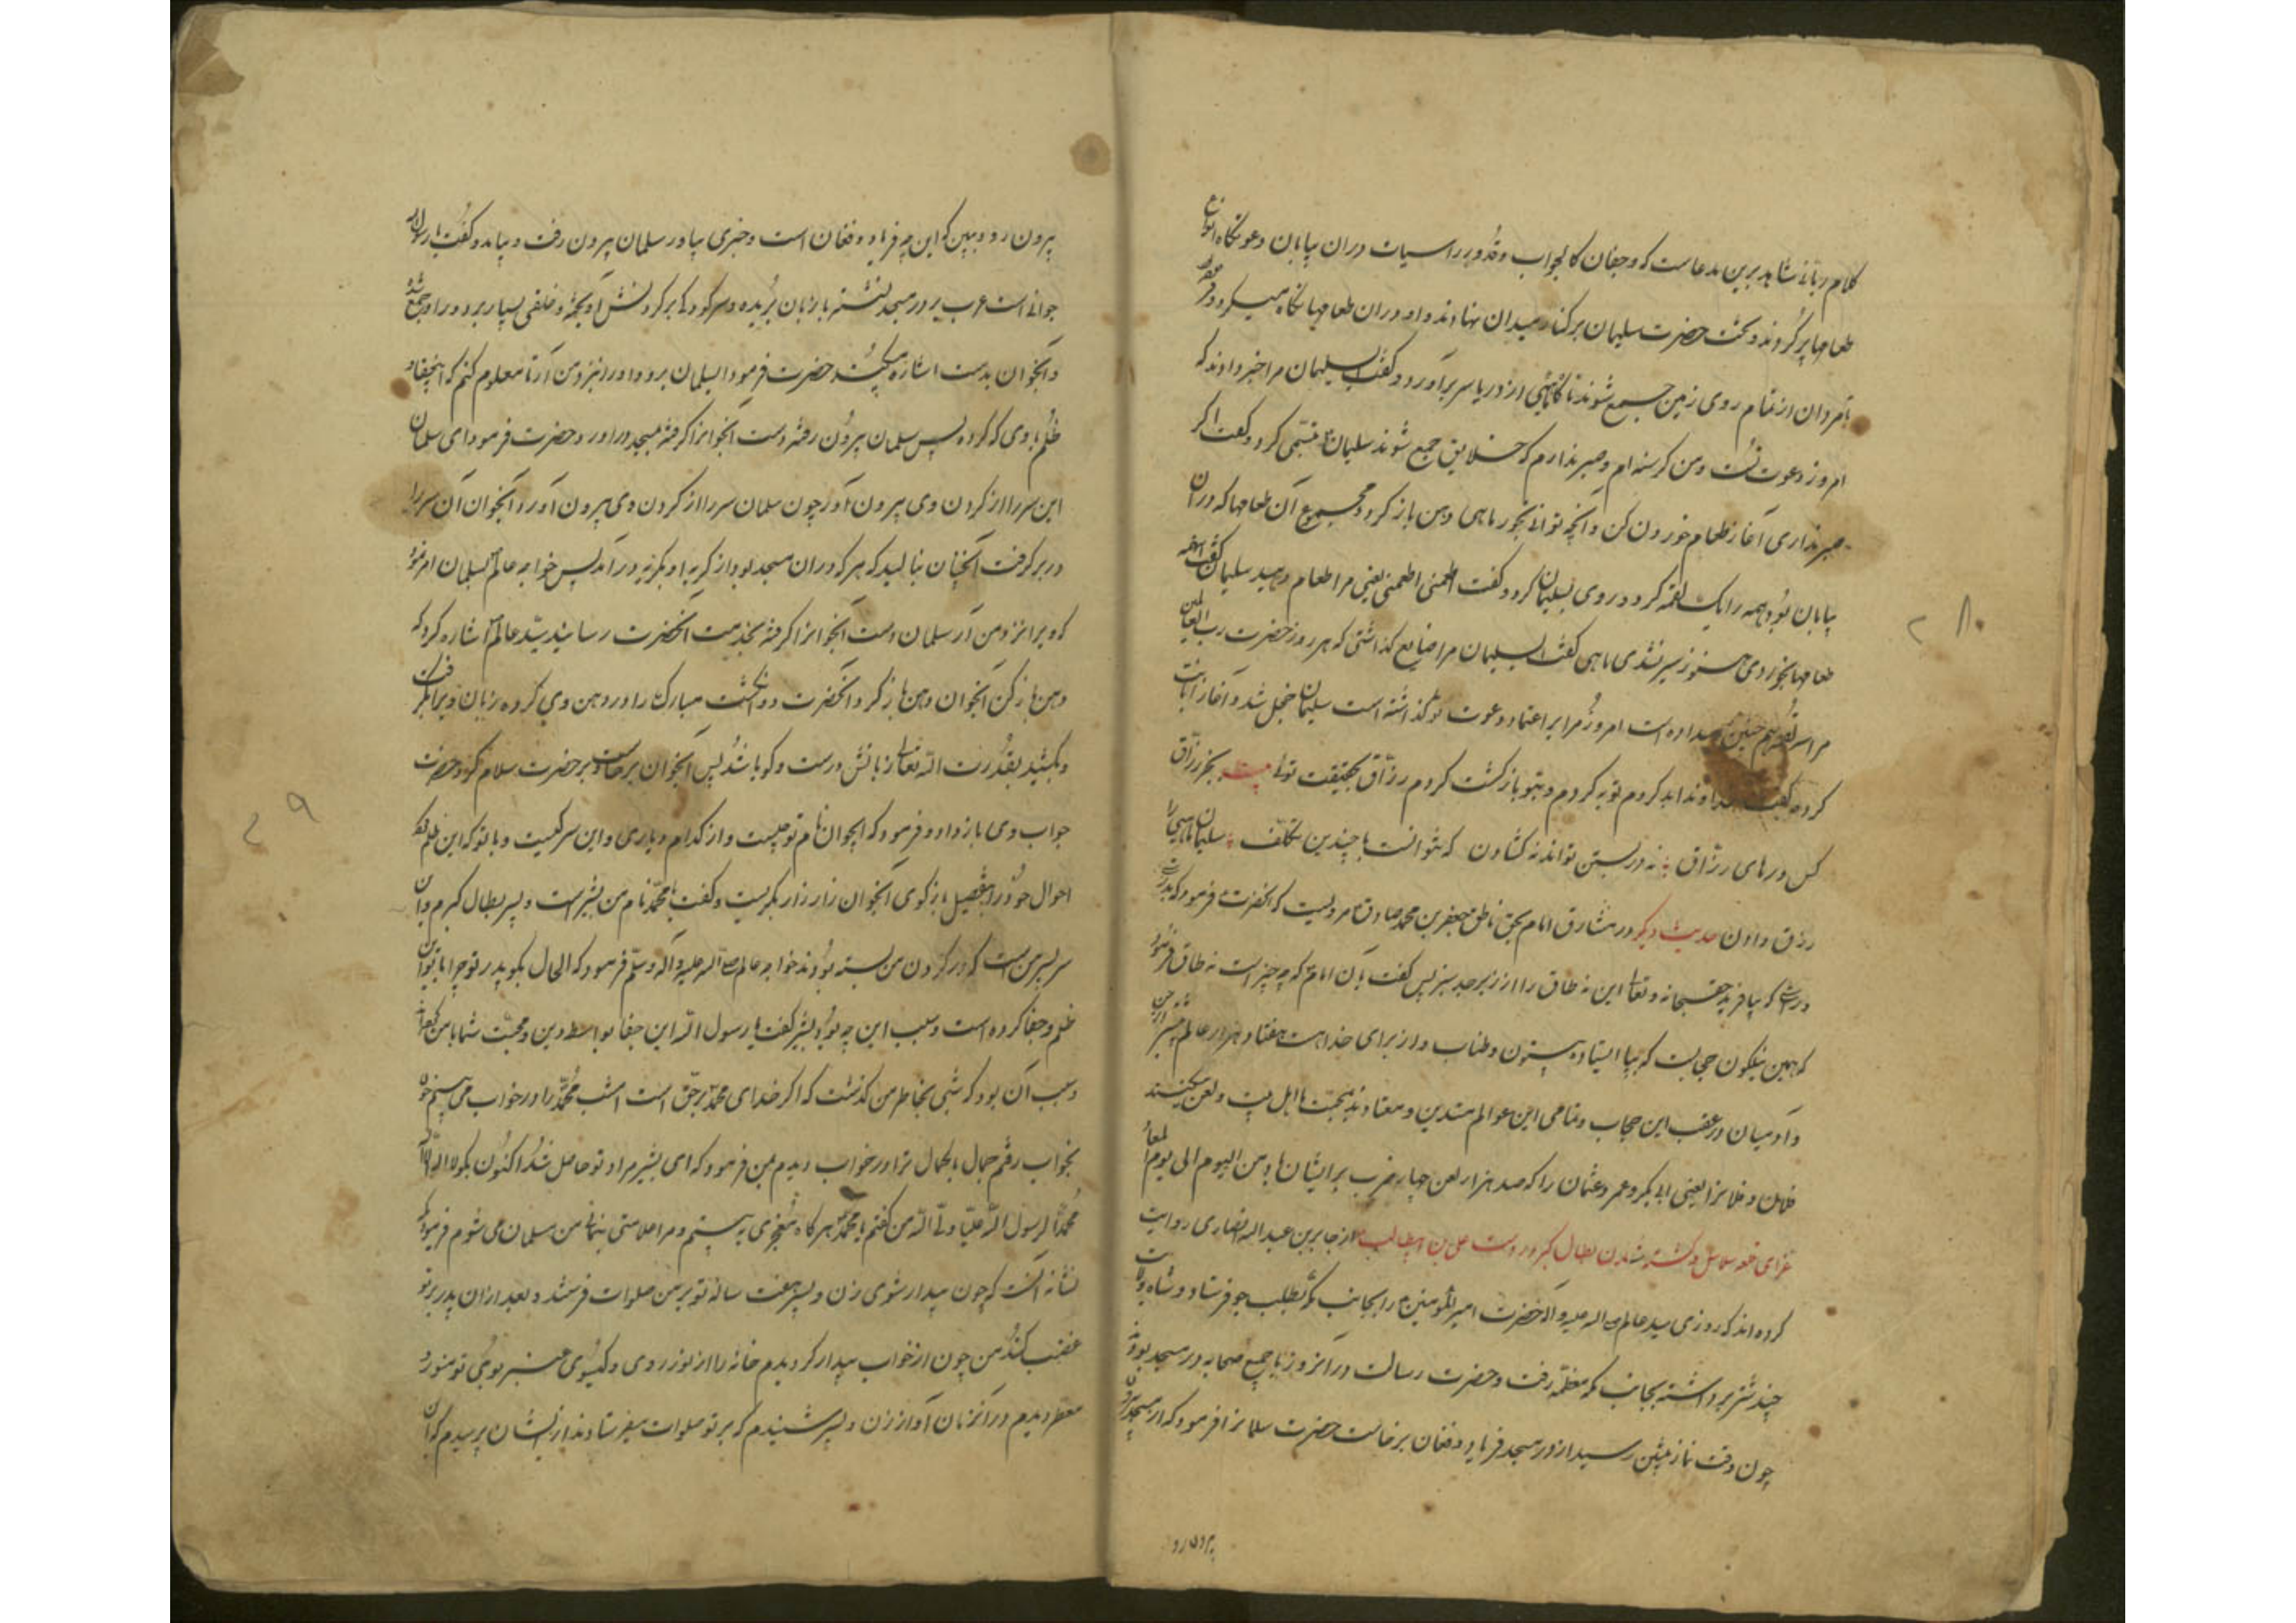 کلام ربانی شاهد برین مدعاست که وجفان کالجواب وقدور راسیات دران بیابان دعوتگاه انواع
طعامها پر کردند و تخت حضرت سلیمان بر کنار میدان نهادند و او دران طعامها نگاه میکرد و
تا مردان از تمام روی زمین جمع شوند تا گاه ماهی از دریا سر برآورد و گفت یا سلیمان مرا خبر دادند که
امروز دعوت تست و من گرسنه ام و صبر ندارم که خلایق جمع شوند سلیمان تبسمی کرد و گفت اگر
صبر نداری آغاز طعام خوردن کن و آنچه توانی بخور ماهی دهن باز کرد و مجموع آن طعامها که دران
بیابان بود همه را یک لقمه کرد و روی بسلیمان کرد و گفت اطعمنی اطعمنی یعنی مرا طعام دهید سلیمان گفت اینهمه
طعامها بخوردی هنوز سیر نشدی ماهی گفت یا سلیمان مرا ضایع گذاشتی که هر روز حضرت رب العالمین
مرا سه لقمه همچنین میداده است امروز مرا بر اعتماد دعوت تو گذاشته است سلیمان خجل شد و آغاز انابت
کرده گفت خداوندا بد کردم توبه کردم و بتو بازگشت کردم رزاق بحقیقت توئی بیت بجز رزاق
کس درهای رزاق نه در بستن تواند نه گشادن که نتوانست با چندین تکلف سلیمان ماهیی را
رزق دادن حدیث دیگر در مشارق امام بحق ناطق جعفر بن محمد صادق مرویست که آنحضرت فرمود که بدرستی
که بیافرید حق سبحانه و تعالی این نه طاق را از زبرجد سبز پس گفت بآن امام که چه چیز است نه طاق فرمود
که همین نیلگون حجابیست که بپا ایستاده بیستون و طناب و از برای خدا است هفتاد هزار عالم غیر از جن
و آدمیان در عقب این حجاب و تمامی این عوالم متدین و معتادند بمحبت ما اهل بیت و لعن میکنند
فلان و فلانرا یعنی ابی بکر و عمر و عثمان را که صد هزار لعن چهار ضرب بر ایشان باد من الیوم الی یوم المعاد
غزای سلاسل و کشته شدن بطال گبر در دست علی بن ابیطالب از جابر بن عبد الله انصاری روایت
کرده اند که روزی سید عالم صلی الله علیه و آله حضرت امیر المؤمنین را بجانب مکه بطلب جو فرستاد و شاه ولایت
چند شتر برداشته بجانب مکه معظمه رفت و حضرت رسالت در آنروز با جمیع صحابه در مسجد بودند
چون وقت نماز پیشین رسید از در مسجد فریاد و فغان برخاست حضرت سلمانرا فرمود که از مسجد بیرون
بیرون رو
بیرون رو و ببین که این چه فریاد و فغان است و خبری بیاور سلمان بیرون رفت و بیامد و گفت یا رسول الله
جوانی است عرب بر در مسجد نشسته با زبان بریده و سر کودکی بر گردنش آویخته و خلقی بسیار بر دور او جمع شده
و آنجوان بدست اشاره میکند حضرت فرمود یا سلمان برو و او را نزد من آر تا معلوم کنم که اینچنین
ظلم با وی که کرده پس سلمان بیرون رفته دست آنجوانرا گرفته بمسجد درآورد حضرت فرمود ای سلمان
این سر را از گردن وی بیرون آور چون سلمان سر را از گردن وی بیرون آورد آنجوان آن سر را
در بر گرفت آنچنان بنالید که هر که دران مسجد بود از گریه او بگریه درآمد پس خواجه عالم بسلمان امر نمود
که ویرا نزد من آر سلمان دست آنجوانرا گرفته بخدمت آنحضرت رسانید سید عالم اشاره کرد که
دهن باز کن آنجوان دهن باز کرد آنحضرت دو انگشت مبارک را در دهن وی کرده زبان ویرا بگرفت
و بکشید بقدرت الله تعالی زبانش درست و گویا شد پس آنجوان برخاست و بر حضرت سلام کرد و حضرت
جواب وی باز داد و فرمود که ایجوان نام تو چیست و از کدام دیاری و این سر کیست و با تو که این ظلم کرد
احوال خود را بتفصیل بازگوی آنجوان زار زار بگریست و گفت یا محمد نام من بشیر است و پسر بطال گبرم و این
سر پسر من است که در گردن من بسته بودند خواجه عالم صلی الله علیه و آله و سلم فرمود که الحال بگو پدر تو چرا با تو این
ظلم و جفا کرده است و سبب این چه بود بشیر گفت یا رسول الله این جفا بواسطه دین و محبت شما با من کرده
و سبب آن بود که شبی بخاطر من گذشت که اگر خدای محمد برحق است امشب محمد را در خواب می بینم چون
بخواب رفتم جمال با کمال ترا در خواب دیدم بمن فرمود که ای بشیر مراد تو حاصل شد اکنون بگو لا اله الا الله
محمد الرسول الله علیا ولی الله من گفتم یا محمد هرگاه معجزی به بینم و مرا علامتی بنمائی من مسلمان می شوم فرمود که
نشانه آنست که چون بیدار شوی زن و پسر هفت ساله تو بر من صلوات فرستند و بعد ازان پدر بر تو
غضب کند من چون از خواب بیدار گردیدم خانه را از نور روی و گیسوی عنبر بوی تو منور و
معطر دیدم و در آنزمان آواز زن و پسر شنیدم که بر تو صلوات میفرستادند از ایشان پرسیدم که این